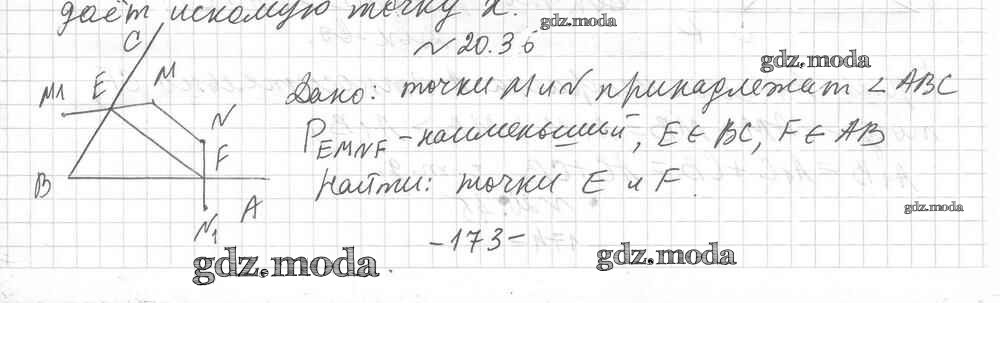 даёт искомую точку X.
gdz.moda
№ 20.36
gdz.moda
C
M1 E M
Дано: точки M и N принадлежат ∠ ABC
N
P EMNF - наименьший, E ∈ BC, F ∈ AB
F
B
Найти: точки E и F
A
gdz.moda
N1
-173-
gdz.moda
gdz.moda